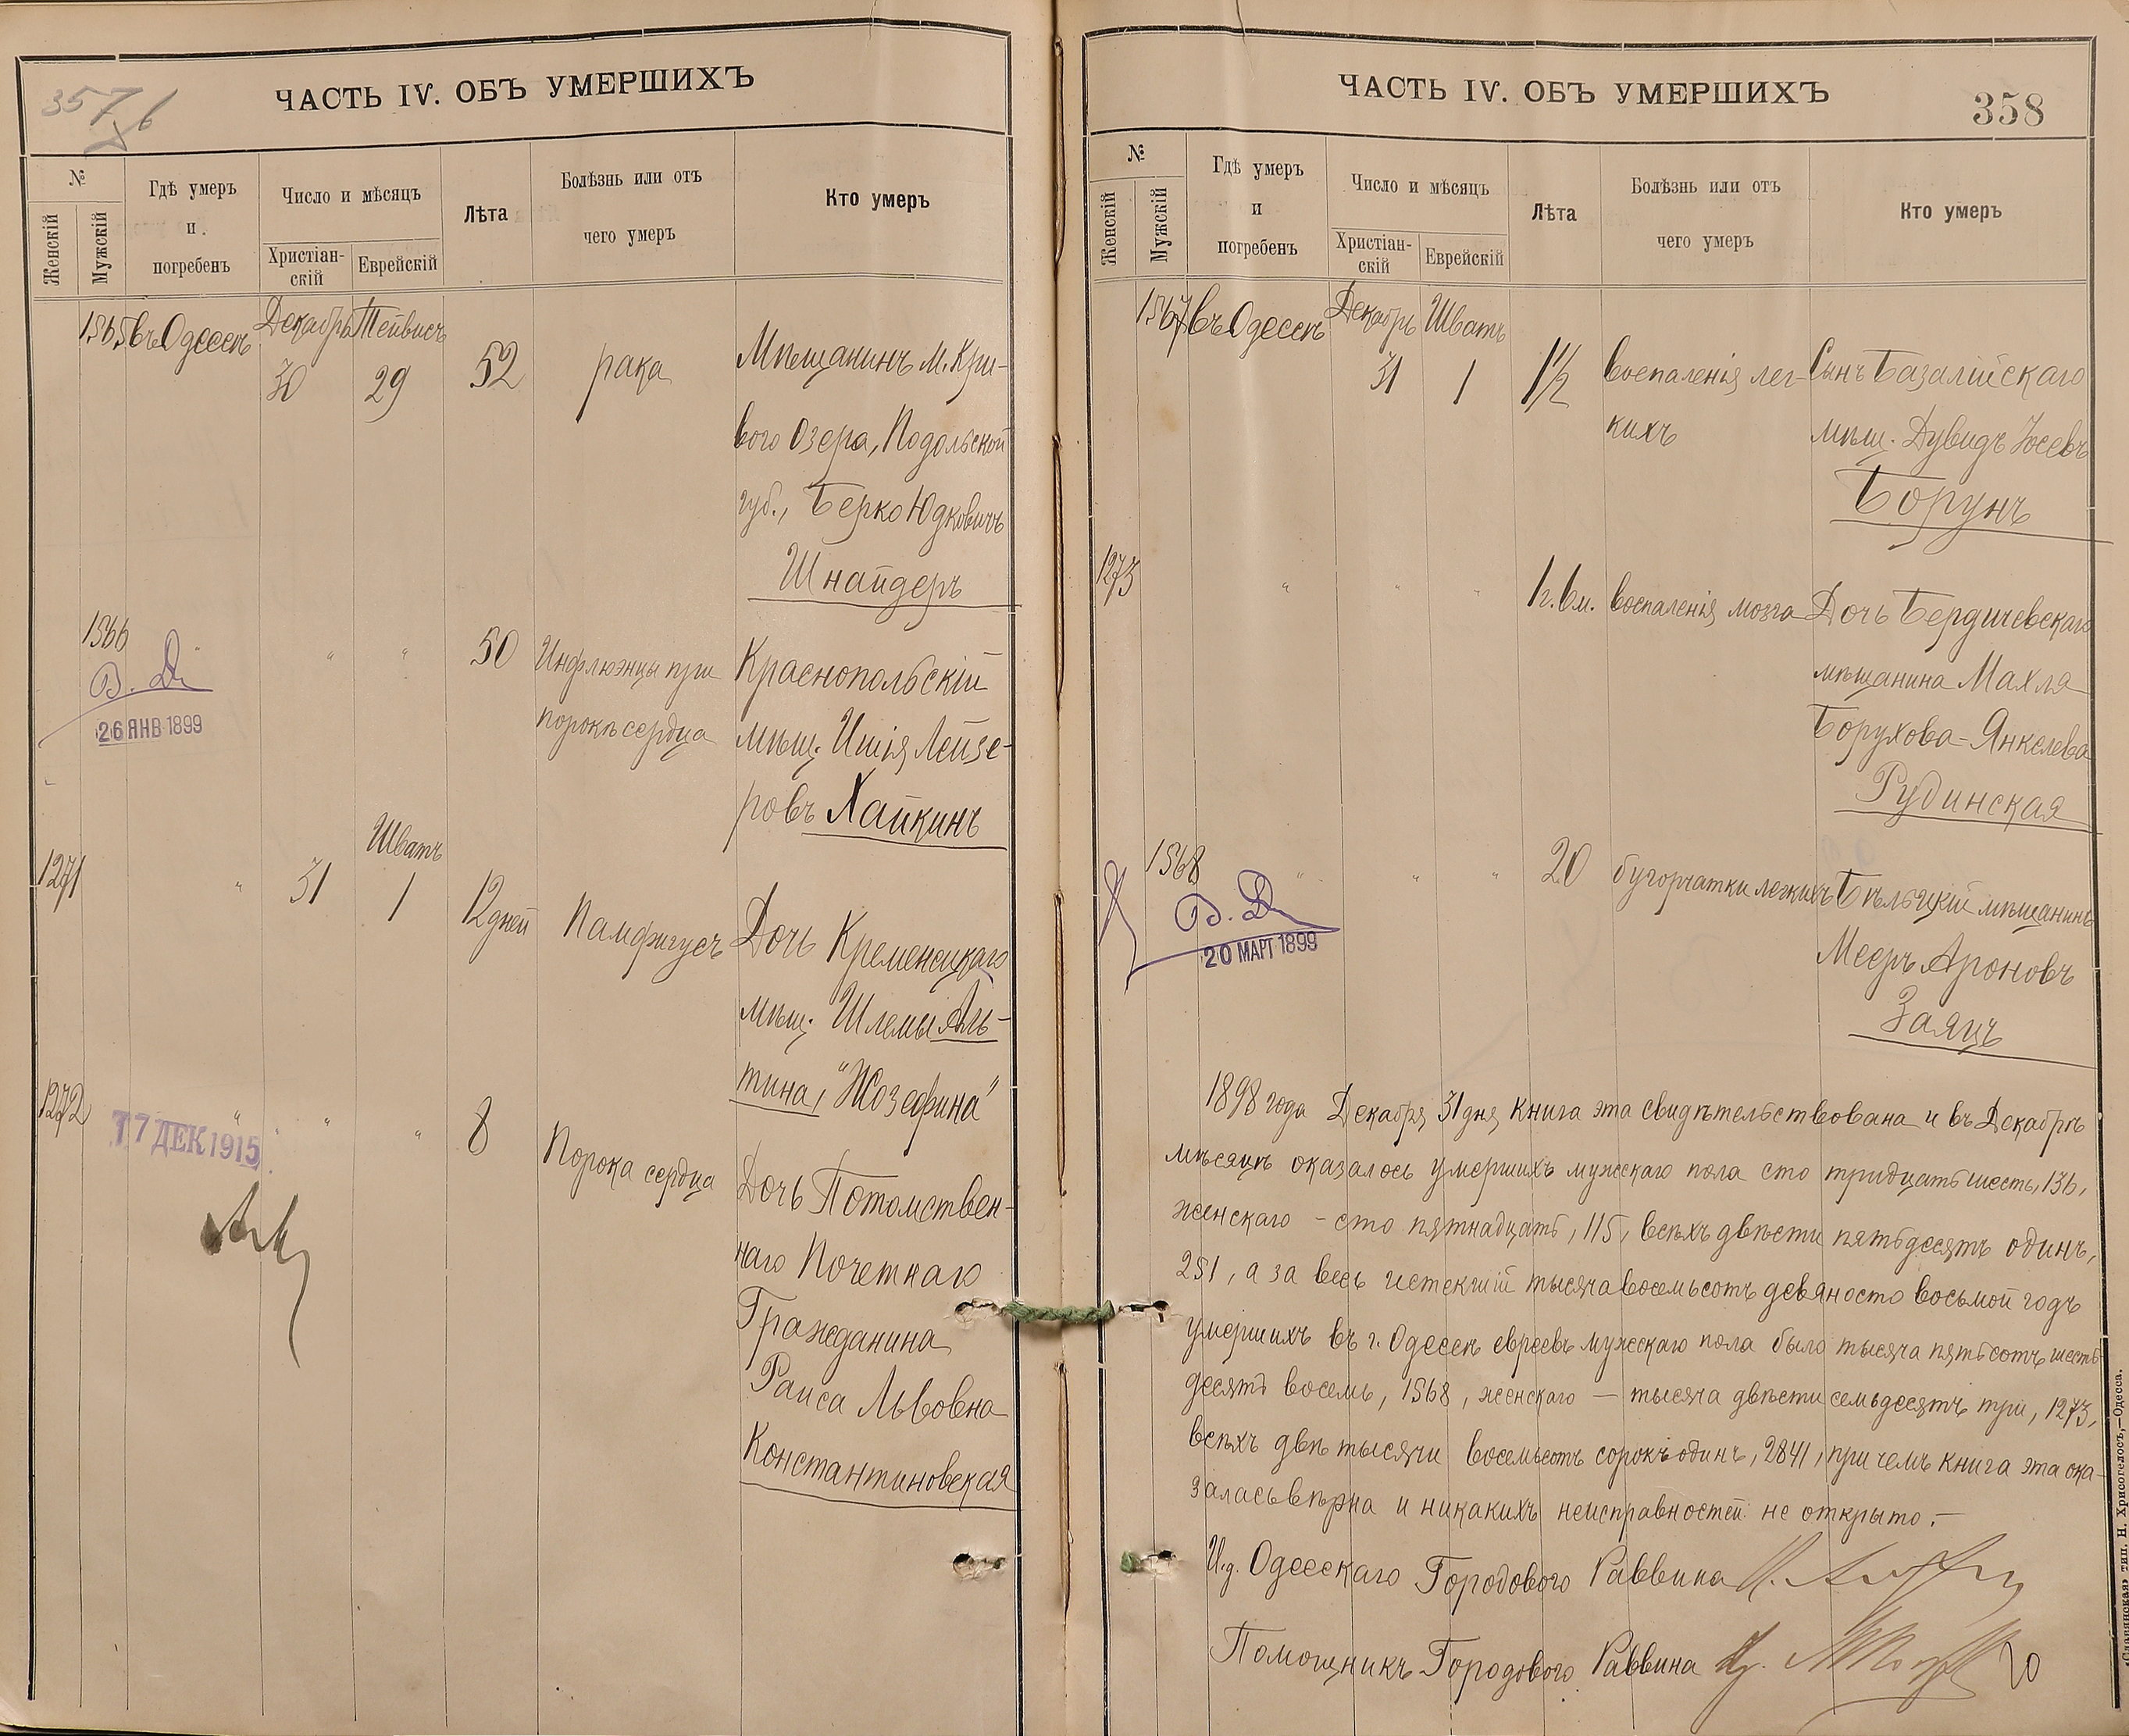 357 б
ЧАСТЬ IV. ОБЪ УМЕРШИХЪ
№
Женскій
Мужскій
Гдѣ умеръ
и
погребенъ
Число и мѣсяцъ
Христіан-
скій
Еврейскій
Лѣта
Болѣзнь или отъ
чего умеръ
Кто умеръ
1565 въ Одессѣ Декабрь Тейвисъ
30 29 52 рака Мѣщанинъ м. Кри-
вого Озера, Подольской
губ., Берко Юдковичъ
Шнайдеръ
1566 " " " 50 Инфлюэнцы при Краснопольскій
порокѣ сердца мѣщ. Ишія Лейзе-
ровъ Хайкинъ
26 ЯНВ 1899
Шватъ
1271 " 31 1 12 дней Памфигусъ Дочь Кременецкаго
мѣщ. Шлемы Аль-
тина, "Жозефина"
1272 " " " 8 Порока сердца Дочь Потомствен-
наго Почетнаго
Гражданина
Раиса Львовна
Константиновская
17 ДЕК 1915
ЧАСТЬ IV. ОБЪ УМЕРШИХЪ
358
№
Женскій
Мужскій
Гдѣ умеръ
и
погребенъ
Число и мѣсяцъ
Христіан-
скій
Еврейскій
Лѣта
Болѣзнь или отъ
чего умеръ
Кто умеръ
1567 въ Одессѣ Декабрь Шватъ
31 1 1½ воспаленія лег- Сынъ Базалійскаго
кихъ мѣщ. Дувидъ Іосевъ
Борунъ
1273 " " " 1 г. 6 м. воспаленія мозга Дочь Бердичевскаго
мѣщанина Махля
Борухова-Янкелева
Рудинская
1568 " " " 20 бугорчатки легкихъ Бѣльцкій мѣщанинъ
Мееръ Ароновъ
Заяцъ
20 МАРТ 1899
1898 года Декабря 31 дня книга эта свидѣтельствована и въ Декабрѣ
мѣсяцѣ оказалось умершихъ мужскаго пола сто тридцать шесть, 136,
женскаго – сто пятнадцать, 115, всѣхъ двѣсти пятьдесятъ одинъ,
251, а за весь истекшій тысяча восемьсотъ девяносто восьмой годъ
умершихъ въ г. Одессѣ евреевъ мужскаго пола было тысяча пятьсотъ шесть-
десятъ восемь, 1568, женскаго – тысяча двѣсти семьдесятъ три, 1273,
всѣхъ двѣ тысячи восемьсотъ сорокъ одинъ, 2841, при чемъ книга эта ока-
залась вѣрна и никакихъ неисправностей не открыто.–
И.д. Одесскаго Городового Раввина
Помощникъ Городового Раввина
«Славянская» тип. Н. Хрисогелосъ,—Одесса.